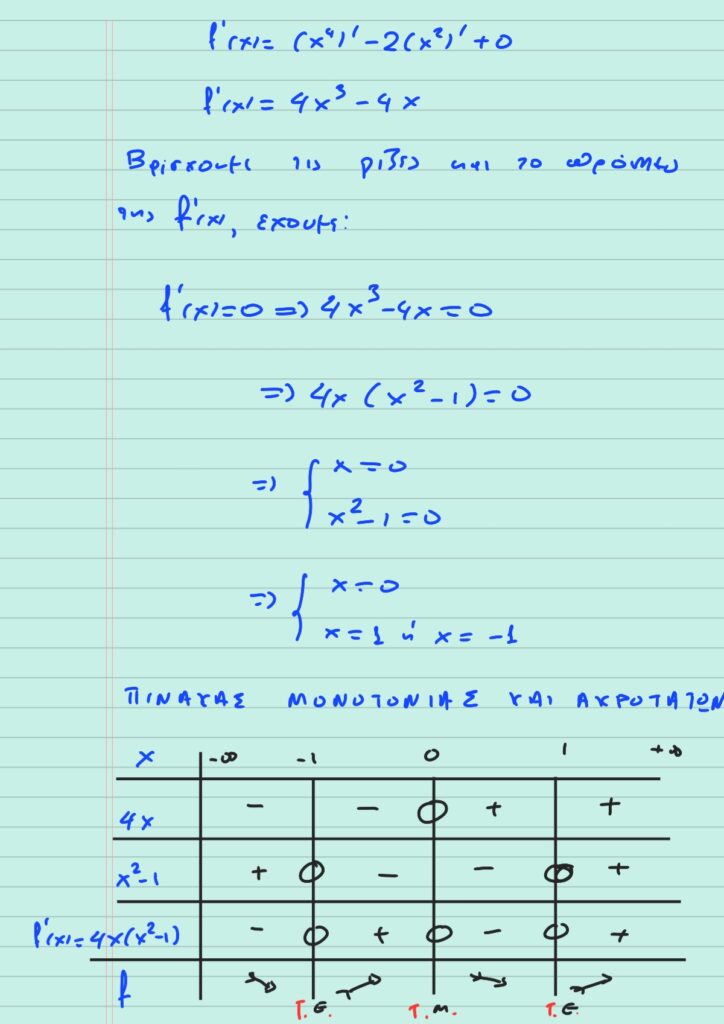 f'(x)= (x⁴)' - 2(x²)' + 0
f'(x)= 4x³ - 4x
Βρίσκουμε τις ρίζες και το πρόσημο
της f'(x), έχουμε:
f'(x)=0 => 4x³-4x=0
=> 4x (x²-1)=0
=> { x=0
x²-1=0
=> { x=0
x=1 ή x= -1
ΠΙΝΑΚΑΣ ΜΟΝΟΤΟΝΙΑΣ ΚΑΙ ΑΚΡΟΤΑΤΩΝ
x -∞ -1 0 1 +∞
4x - - 0 + +
x²-1 + 0 - - 0 +
f'(x)=4x(x²-1) - 0 + 0 - 0 +
f ↘ ↗ ↘ ↗
Τ.Ε. Τ.Μ. Τ.Ε.